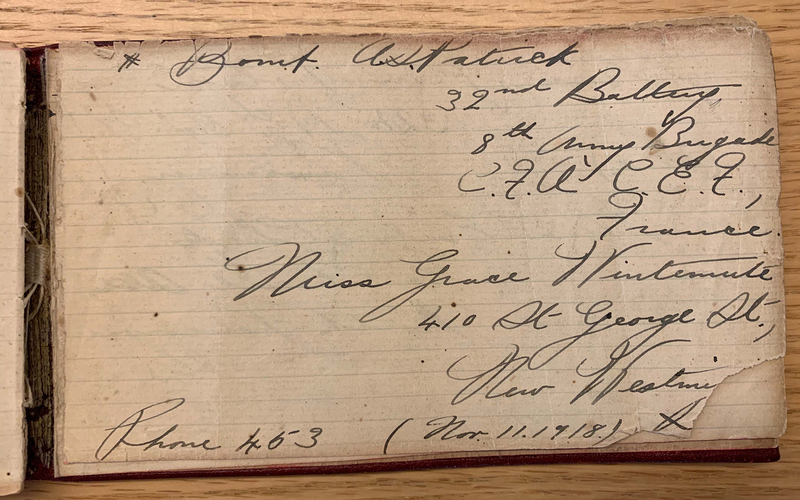 * Bomb. A.S. Patrick
32nd Battery,
8th Army Brigade
C.F.A. C.E.F.,
France.
Miss Grace Wintemute
410 St George St.,
New Westmi
Phone 453 (Nov. 11. 1918.)